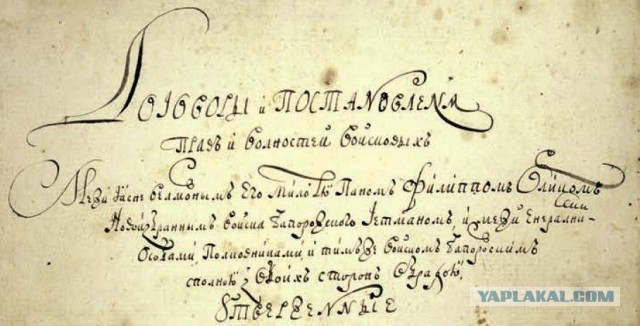 Договоры и Постановленя
Правъ и волностей войсковыхъ
Межи Ясне велможнымъ Его Милостю Паномъ Филиппомъ Орликомъ
Новоизбраннымъ войска Запорожского Гетманомъ, и межи Енералними
Особами, Полковниками, и тимъже войскомъ Запорозскимъ
сполною з обоихъ сторонъ обрадою,
Утверженные
YAPLAKAL.COM